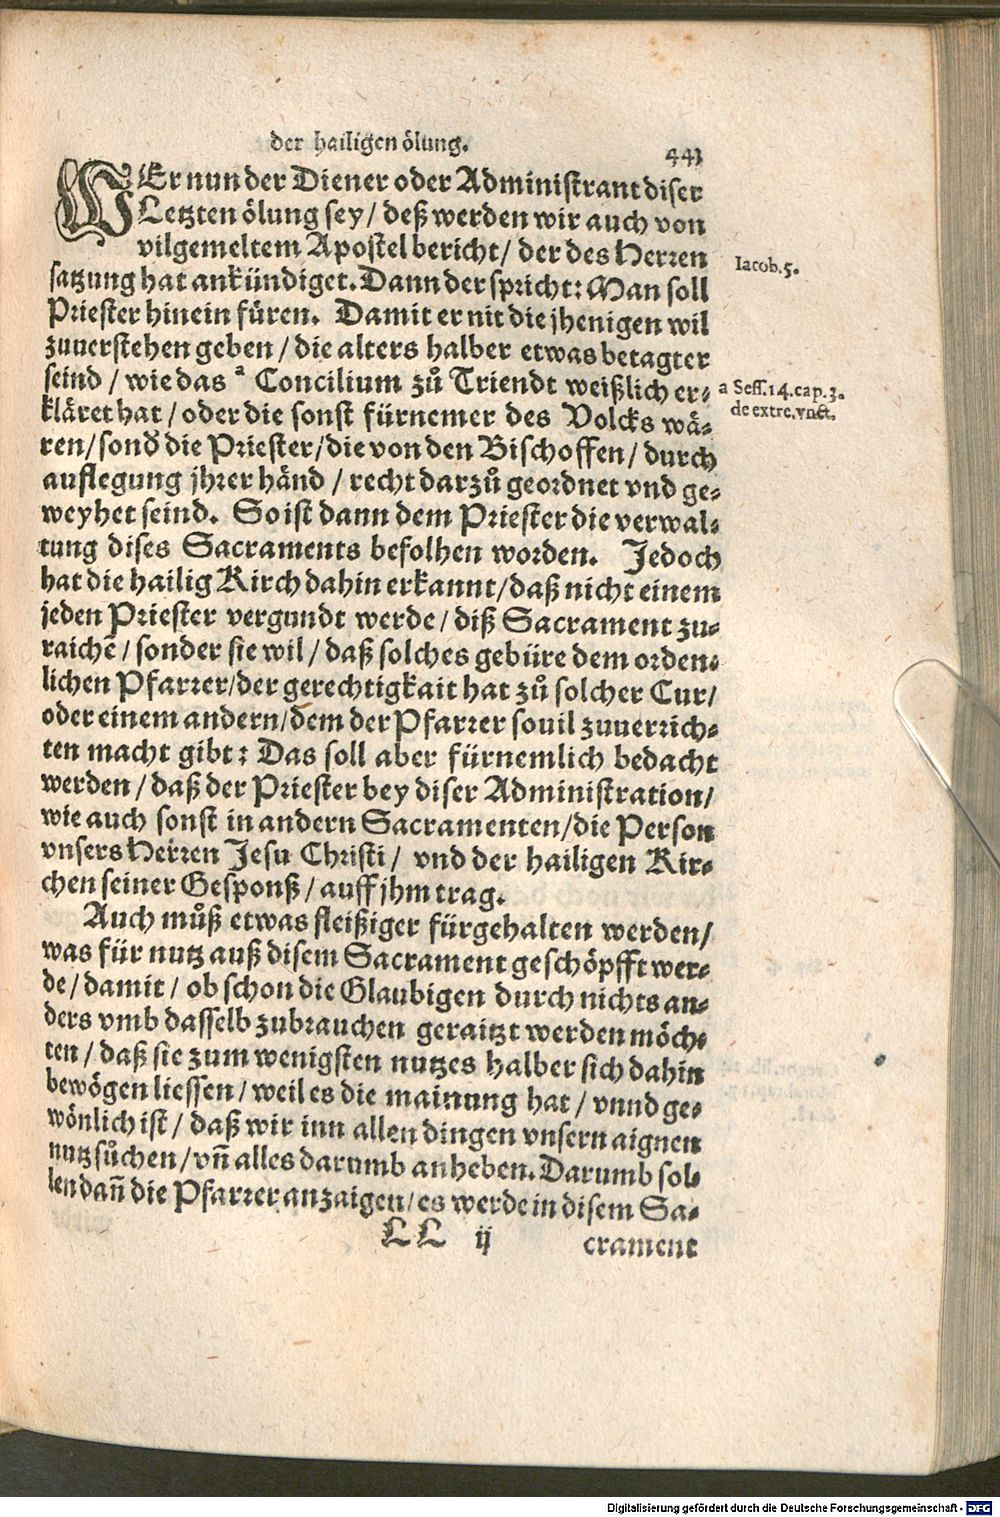 der hailigen ölung.
443
WEr nun der Diener oder Administrant diser
Letzten ölung sey / deß werden wir auch von
vilgemeltem Apostel bericht / der des Herren
Iacob. 5.
satzung hat ankündiget. Dann der spricht: Man soll
Priester hinein füren. Damit er nit die jhenigen wil
zuuerstehen geben / die alters halber etwas betagter
seind / wie das ᵃ Concilium zů Triendt weißlich er-
a Sess. 14. cap. 3.
kläret hat / oder die sonst fürnemer des Volcks wä-
de extre. vnct.
ren / sond̕ die Priester / die von den Bischoffen / durch
auflegung jhrer händ / recht darzů geordnet vnd ge-
weyhet seind. So ist dann dem Priester die verwal-
tung dises Sacraments befolhen worden. Jedoch
hat die hailig Kirch dahin erkannt / daß nicht einem
jeden Priester vergundt werde / diß Sacrament zu-
raichē / sonder sie wil / daß solches gebüre dem orden-
lichen Pfarrer / der gerechtigkait hat zů solcher Cur /
oder einem andern / dem der Pfarrer souil zuuerrich-
ten macht gibt: Das soll aber fürnemlich bedacht
werden / daß der Priester bey diser Administration /
wie auch sonst in andern Sacramenten / die Person
vnsers Herren Jesu Christi / vnd der hailigen Kir-
chen seiner Gesponß / auff jhm trag.
Auch můß etwas fleißiger fürgehalten werden /
was für nutz auß disem Sacrament geschöpfft wer-
de / damit / ob schon die Glaubigen durch nichts an-
ders vmb dasselb zubrauchen geraitzt werden möch-
ten / daß sie zum wenigsten nutzes halber sich dahin
bewögen liessen / weil es die mainung hat / vnnd ge-
wönlich ist / daß wir inn allen dingen vnsern aignen
nutz sůchen / vñ alles darumb anheben. Darumb sol-
len dañ die Pfarrer anzaigen / es werde in disem Sa-
LL ij
crament
Digitalisierung gefördert durch die Deutsche Forschungsgemeinschaft - DFG